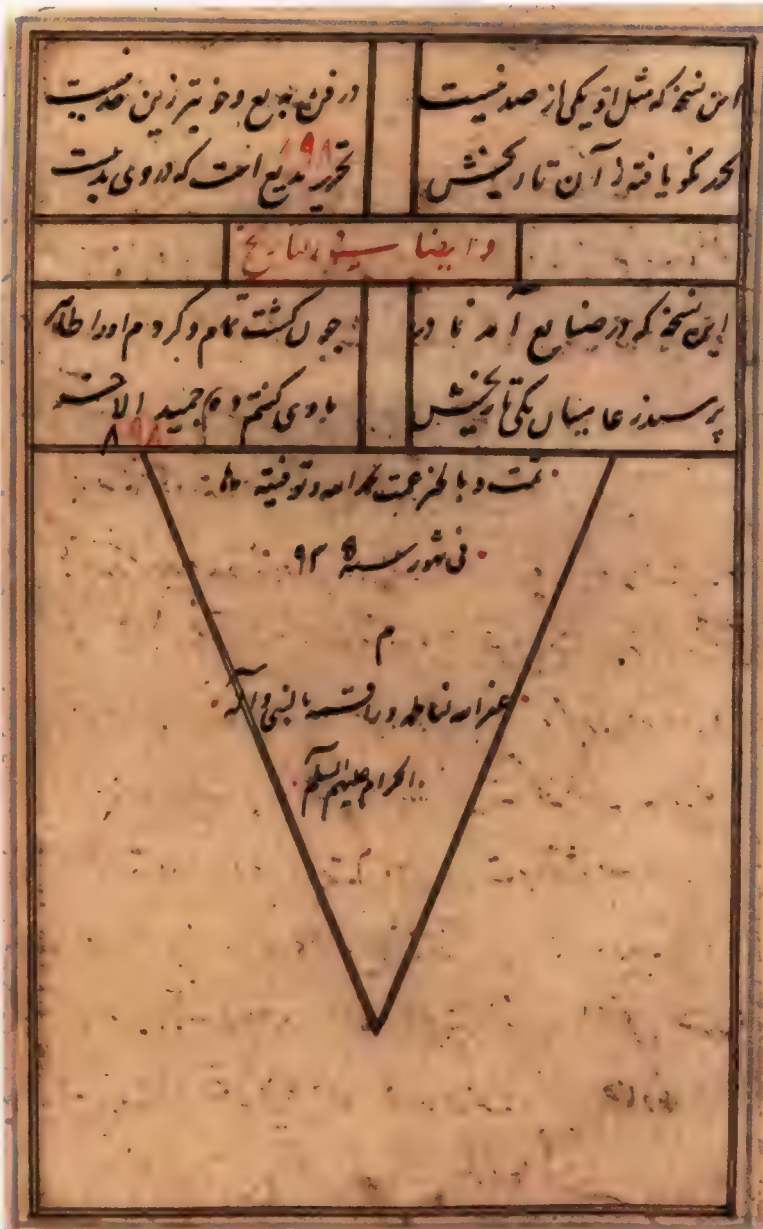 این نسخه که مثل او یکی از صد نیست در فن بدیع و خوبتر زین خود نیست
نیکو یافته آن تاریخش ۸۹۸ تحریر بدیع است که در وی بد نیست
و ایضا سنه التاریخ
این نسخه که در صنایع آمد نادر چون گشت تمام و کردم او را ظاهر
پرسند ز عامیان یکی تاریخش با وی گفتم جمید الاخر
۸۹۸
تمت و بالخیر عمت بحمد الله و توفیقه
فی شهور سنه ۹۳۵
م
غفر الله بالنبی و آله
الکرام علیهم السلام